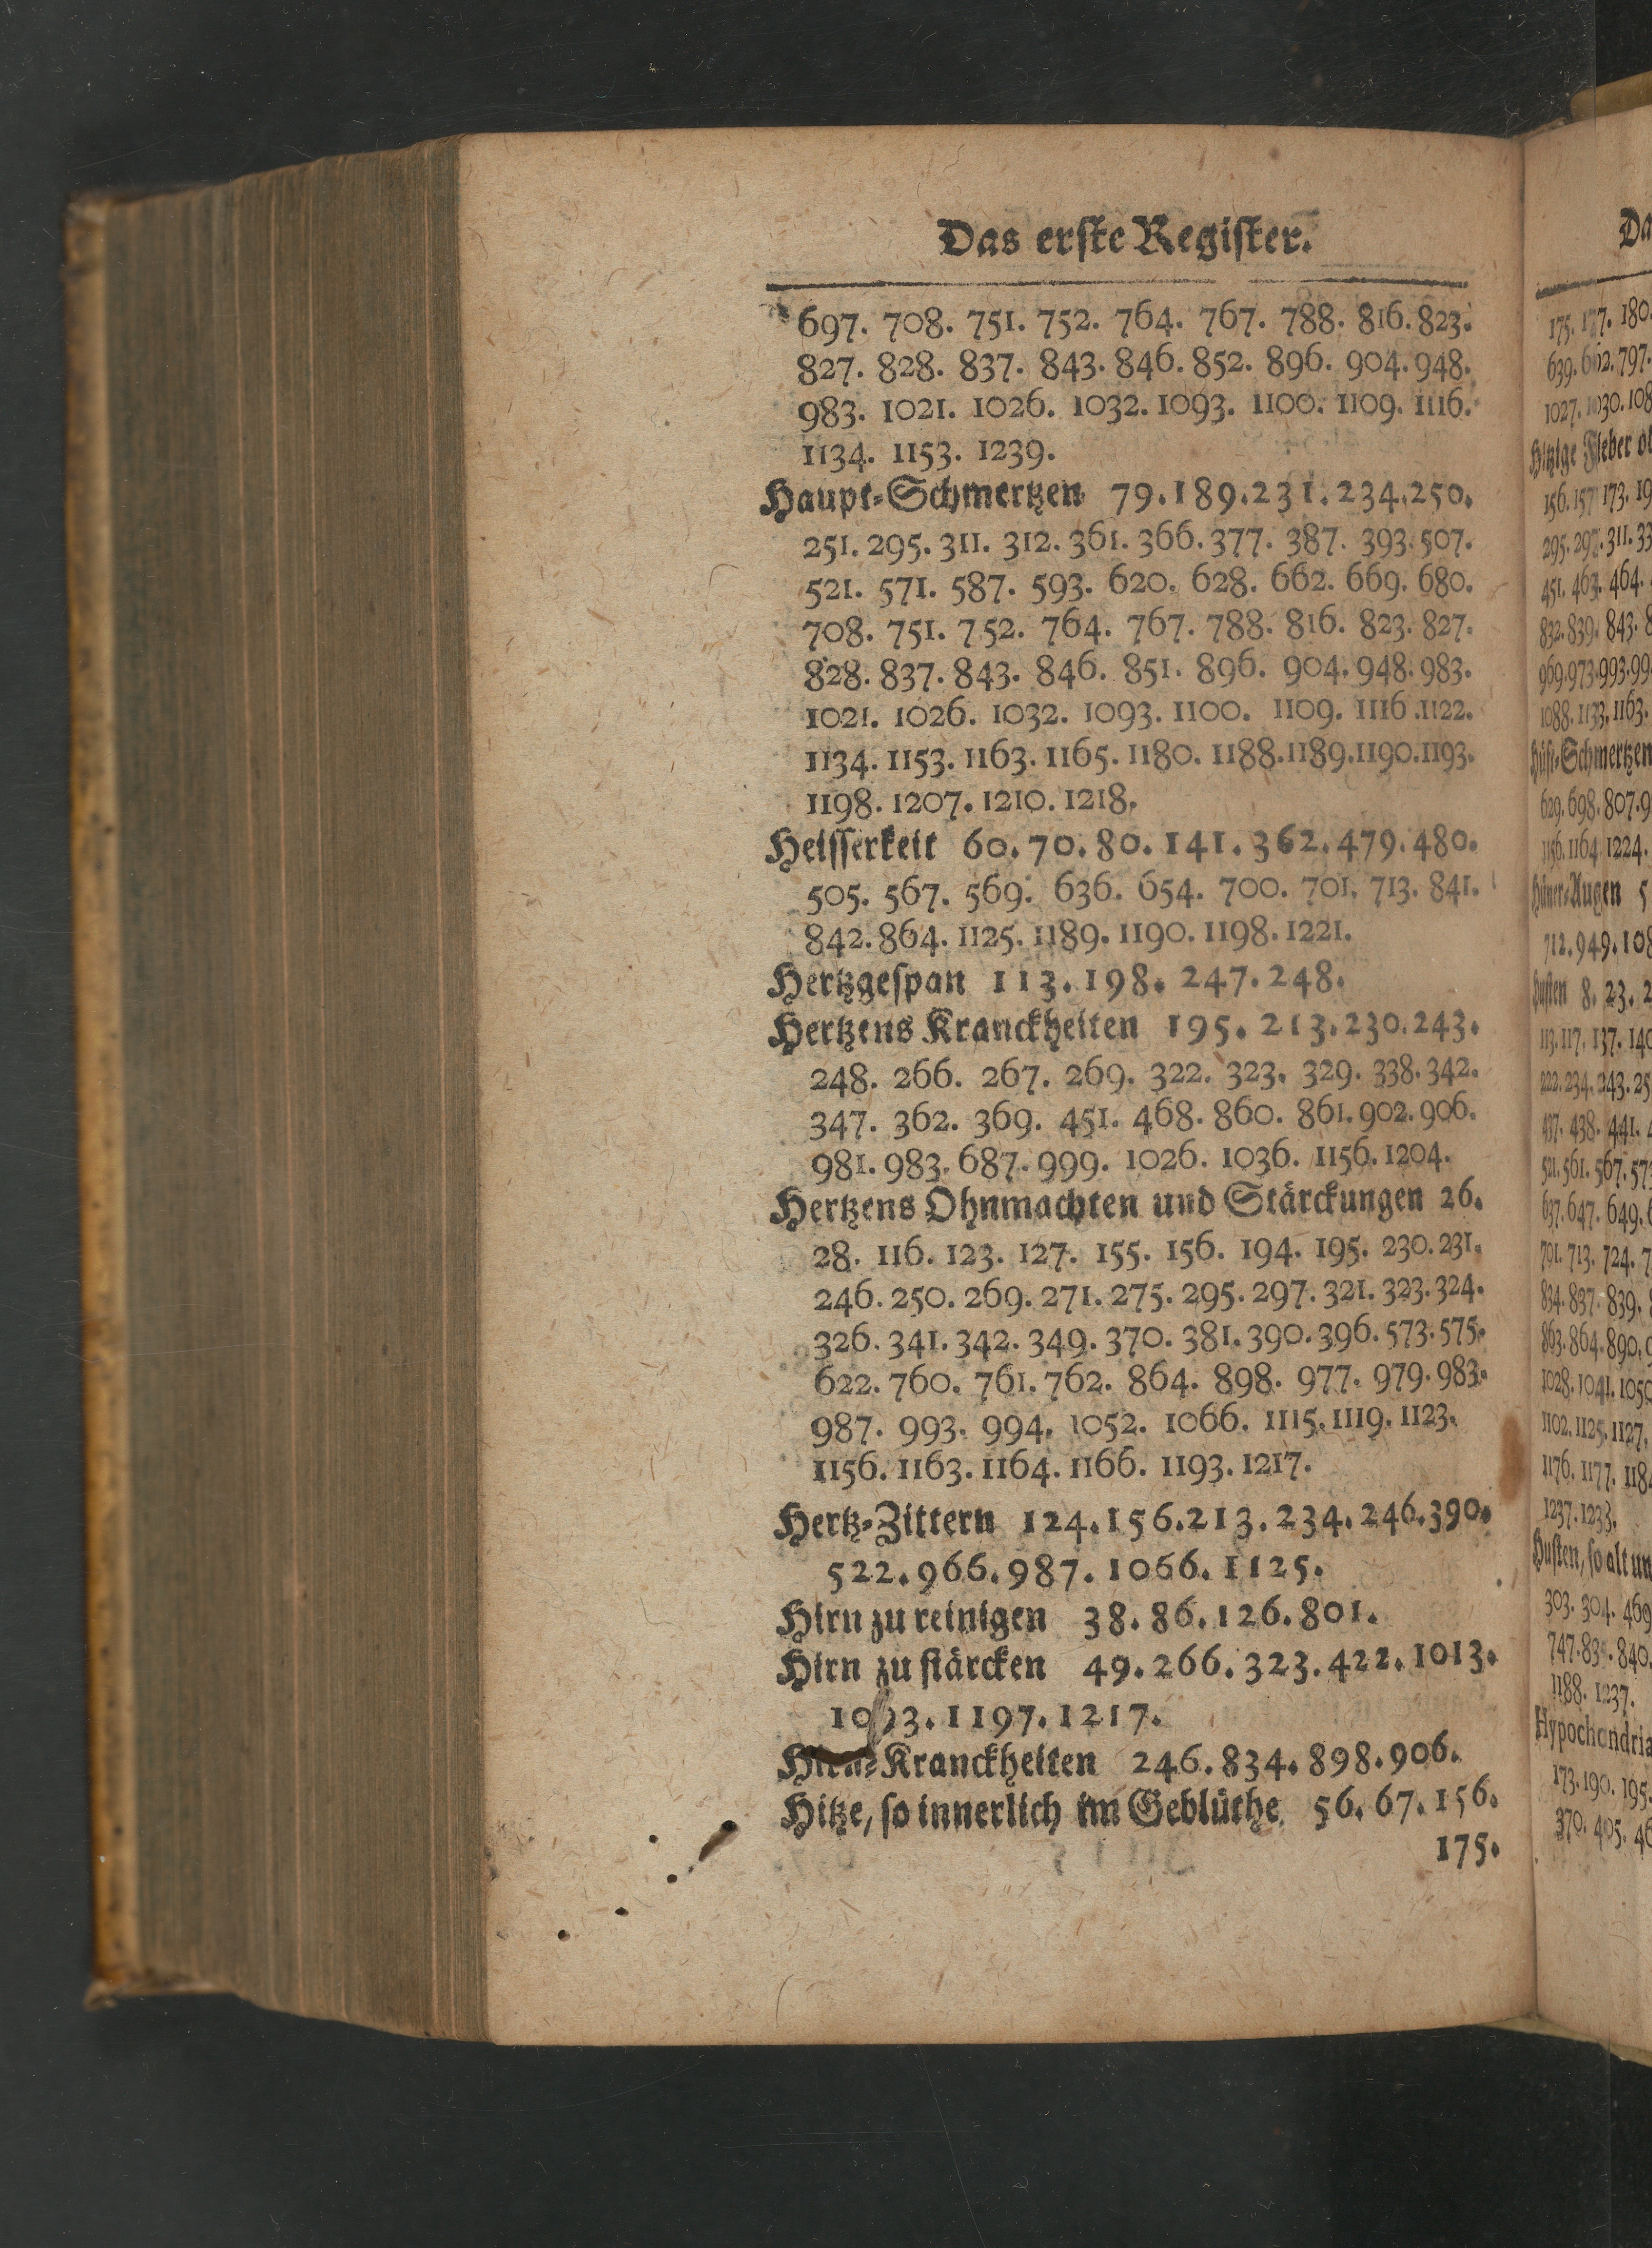 Das erste Register.
697. 708. 751. 752. 764. 767. 788. 816. 823.
827. 828. 837. 843. 846. 852. 896. 904. 948.
983. 1021. 1026. 1032. 1093. 1100. 1109. 1116.
1134. 1153. 1239.
Haupt-Schmertzen 79. 189. 231. 234. 250.
251. 295. 311. 312. 361. 366. 377. 387. 393. 507.
521. 571. 587. 593. 620. 628. 662. 669. 680.
708. 751. 752. 764. 767. 788. 816. 823. 827.
828. 837. 843. 846. 851. 896. 904. 948. 983.
1021. 1026. 1032. 1093. 1100. 1109. 1116. 1122.
1134. 1153. 1163. 1165. 1180. 1188. 1189. 1190. 1193.
1198. 1207. 1210. 1218.
Heisserkeit 60. 70. 80. 141. 362. 479. 480.
505. 567. 569. 636. 654. 700. 701. 713. 841.
842. 864. 1125. 1189. 1190. 1198. 1221.
Hertzgespan 113. 198. 247. 248.
Hertzens Kranckheiten 195. 213. 230. 243.
248. 266. 267. 269. 322. 323. 329. 338. 342.
347. 362. 369. 451. 468. 860. 861. 902. 906.
981. 983. 687. 999. 1026. 1036. 1156. 1204.
Hertzens Ohnmachten und Stärckungen 26.
28. 116. 123. 127. 155. 156. 194. 195. 230. 231.
246. 250. 269. 271. 275. 295. 297. 321. 323. 324.
326. 341. 342. 349. 370. 381. 390. 396. 573. 575.
622. 760. 761. 762. 864. 898. 977. 979. 983.
987. 993. 994. 1052. 1066. 1115. 1119. 1123.
1156. 1163. 1164. 1166. 1193. 1217.
Hertz-Zittern 124. 156. 213. 234. 246. 390.
522. 966. 987. 1066. 1125.
Hirn zu reinigen 38. 86. 126. 801.
Hirn zu stärcken 49. 266. 323. 422. 1013.
1093. 1197. 1217.
Hirn-Kranckheiten 246. 834. 898. 906.
Hitze, so innerlich im Geblüthe 56. 67. 156.
175.
Da
175. 177. 180.
639. 662. 797.
1027. 1030. 108
Hitzige Fieber
156. 157 173. 19
295. 297. 311. 33
451. 463. 464.
832. 839. 843. 8
969. 973. 993. 99
1088. 1133. 1163.
Hüft-Schmertzen
629. 698. 807. 9
1156. 1164 1224.
Hüner-Augen 5
712. 949. 108
Husten 8. 23. 2
113. 117. 137. 140
222. 234. 243. 25
437. 438. 441. 4
521. 561. 567. 573
637. 647. 649. 6
701. 713. 724. 7
834. 837. 839. 8
863. 864. 890. 9
1028. 1041. 1050
1102. 1125. 1127.
1176. 1177. 118
1237. 1233.
Husten, so alt un
303. 304. 469
747. 83 . 840.
1188. 1237.
Hypochondria
173. 190. 195.
370. 405. 46